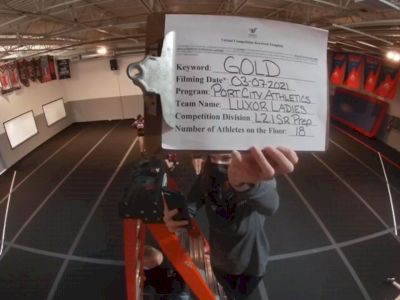 Virtual Competition Keyword Template
Keyword: GOLD
Filming Date: 03-07-2021
Program: PORT CITY ATHLETICS
Team Name: LUXOR LADIES
Competition Division: L2.1 SR PREP
Number of Athletes on the Floor: 18